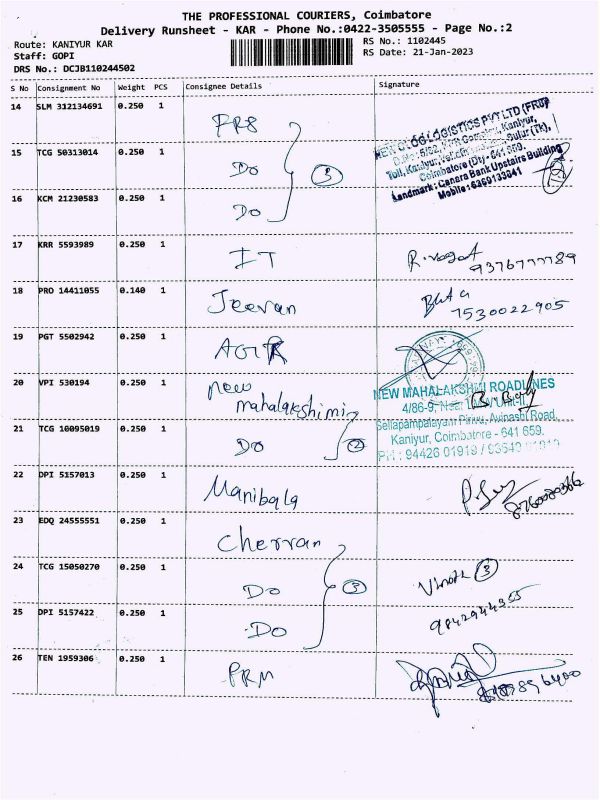 THE PROFESSIONAL COURIERS, Coimbatore
Delivery Runsheet - KAR - Phone No.:0422-3505555 - Page No.:2
Route: KANIYUR KAR
RS No.: 1102445
Staff: GOPI
RS Date: 21-Jan-2023
DRS No.: DCJB110244502
S No Consignment No Weight PCS Consignee Details Signature
14 SLM 312134691 0.250 1 PRS
NEW GLOG LOGISTICS PVT LTD
Kaniyur,
Coimbatore (Dt) - 641 659.
Landmark : Canara Bank Upstairs Building
Mobile : 6369133941
15 TCG 50313014 0.250 1 Do 3
16 KCM 21230583 0.250 1 Do
17 KRR 5593989 0.250 1 IT
18 PRO 14411055 0.140 1 Jeevan
7530022905
19 PGT 5502942 0.250 1
20 VPI 530194 0.250 1 New mahalakshimi
NEW MAHALAKSHMI ROADLINES
4/86-9,
Sellapampalayam Pirivu, Avinashi Road,
Kaniyur, Coimbatore - 641 659.
PH : 94426 01919 /
21 TCG 10095019 0.250 1 Do 2
22 DPI 5157013 0.250 1 Manibala
23 EDQ 24555551 0.250 1 Cherran
24 TCG 15050270 0.250 1 Do 3 3
25 DPI 5157422 0.250 1 Do
26 TEN 1959306 0.250 1 PRM